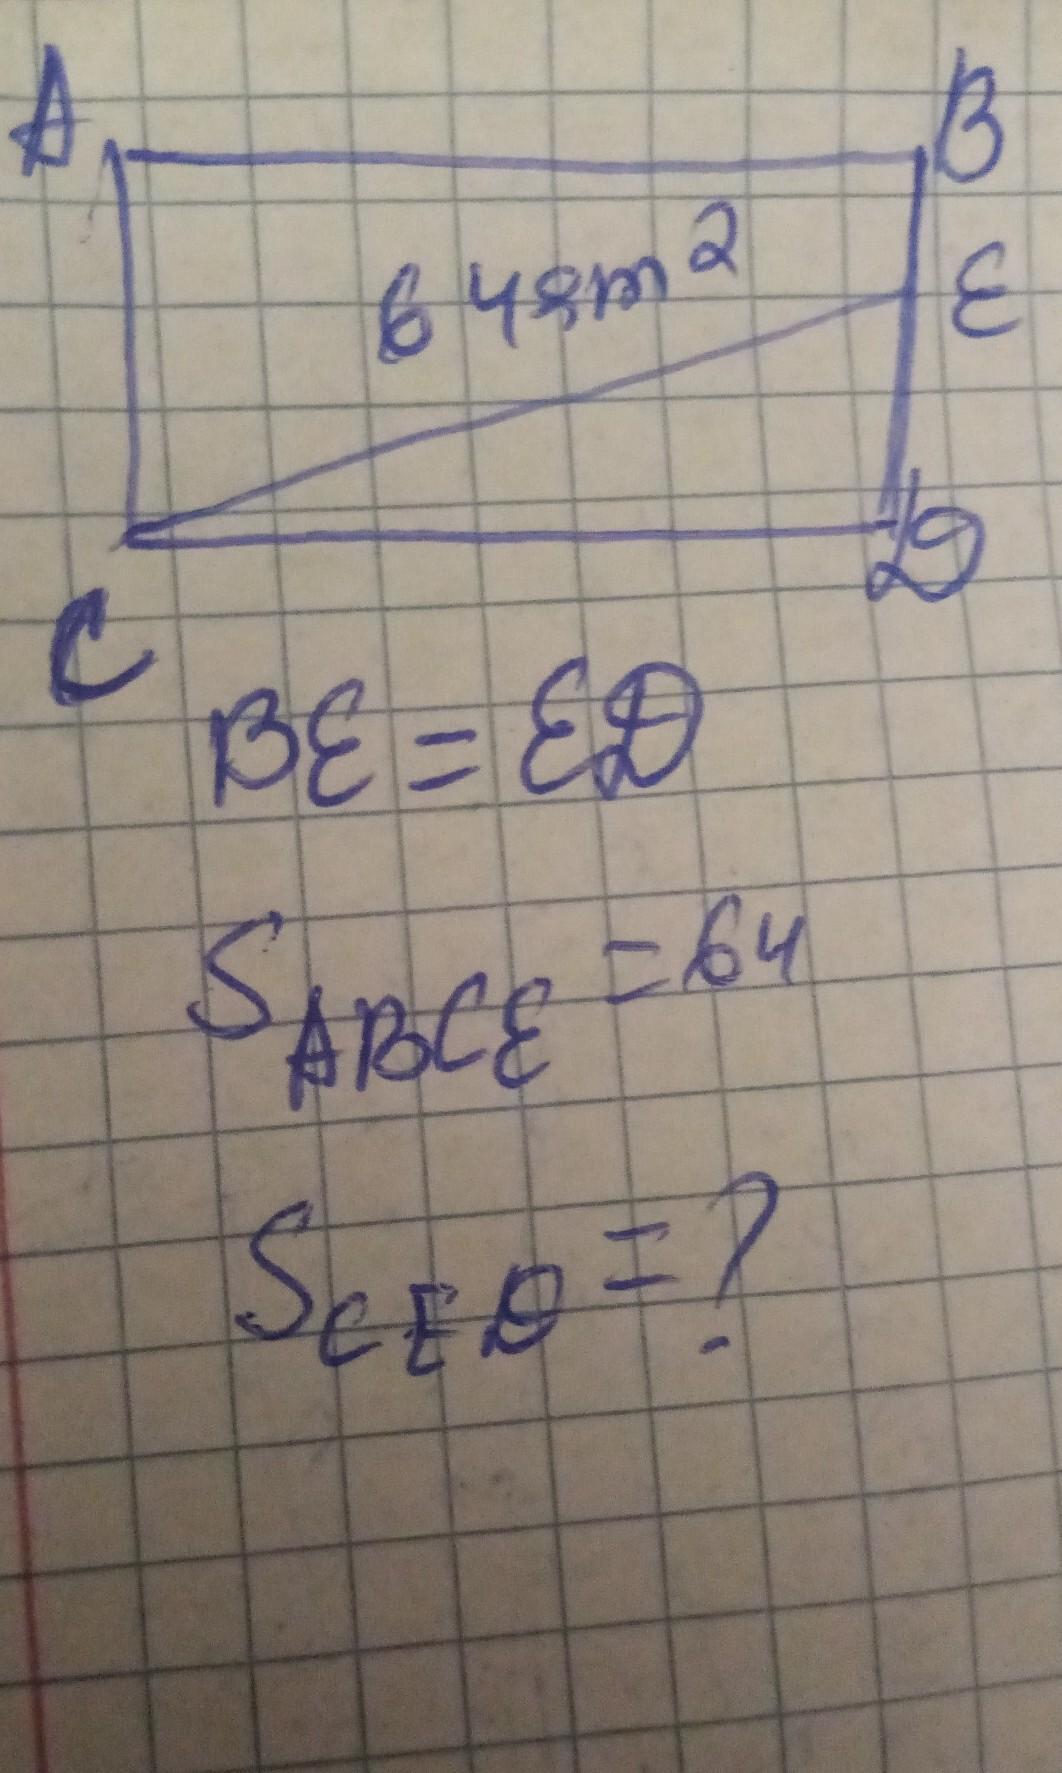 A B
64 sm²
E
C D
BE = ED
S ABCE = 64
S CED = ?